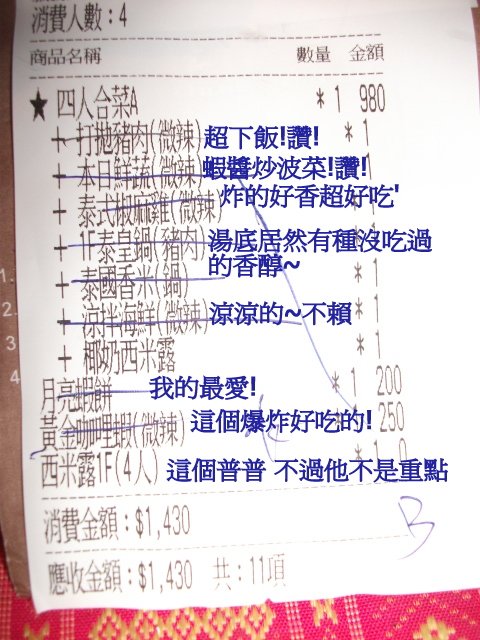 消費人數:4
商品名稱 數量 金額
★ 四人合菜A *1 980
+ 打拋豬肉(微辣) 超下飯!讚! *1
+ 本日鮮蔬(微辣) 蝦醬炒波菜!讚! *1
+ 泰式椒麻雞(微辣) 炸的好香超好吃' *1
+ 1F泰皇鍋(豬肉) 湯底居然有種沒吃過 *1
的香醇~
+ 泰國香米(鍋) *1
+ 涼拌海鮮(微辣) 涼涼的~不賴 *1
+ 椰奶西米露 *1
月亮蝦餅 我的最愛! *1 200
黃金咖哩蝦(微辣) 這個爆炸好吃的! 250
西米露1F(4人) 這個普普 不過他不是重點 *1 0
消費金額:$1,430
B
應收金額:$1,430 共:11項
1.
2.
3
4